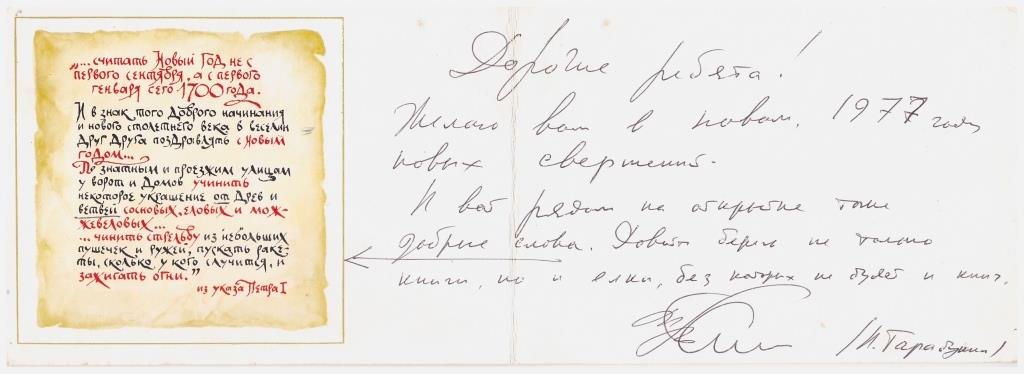 "...считать Новый Год не с
первого сентября, а с первого
генваря сего 1700 года.
И в знак того доброго начинания
и нового столетнего века в веселии
друг друга поздравлять с Новым
годом...
По знатным и проезжим улицам
у ворот и домов учинить
некоторое украшение от древ и
ветвей сосновых, еловых и мож-
жевеловых...
...чинить стрельбу из небольших
пушечек и ружей, пускать раке-
ты, сколько у кого случится, и
зажигать огни."
из указа Петра I
Дорогие ребята!
Желаю вам в новом, 1977 году
новых свершений.
И вот рядом на открытке тоже
добрые слова. Давайте беречь не только
книги, но и елки, без которых не будет и книг.